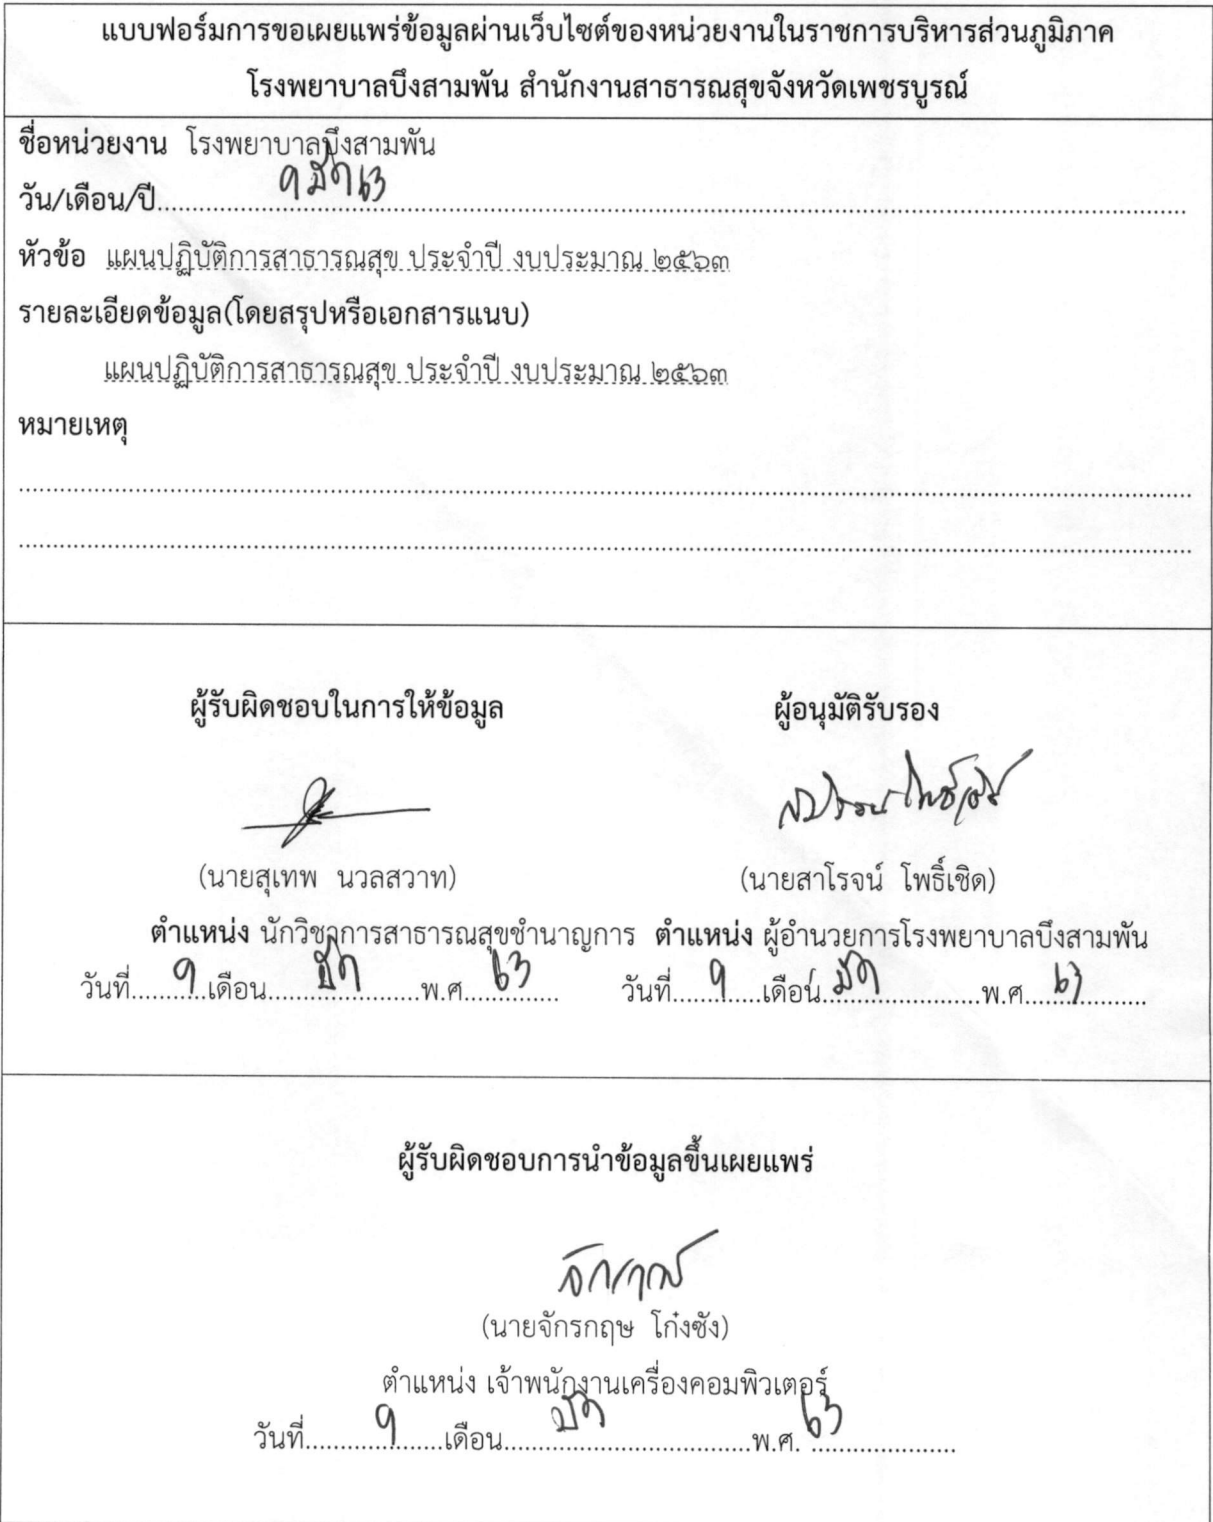 แบบฟอร์มการขอเผยแพร่ข้อมูลผ่านเว็บไซต์ของหน่วยงานในราชการบริหารส่วนภูมิภาค
โรงพยาบาลบึงสามพัน สำนักงานสาธารณสุขจังหวัดเพชรบูรณ์
ชื่อหน่วยงาน โรงพยาบาลบึงสามพัน
วัน/เดือน/ปี 9 มีค 63
หัวข้อ แผนปฏิบัติการสาธารณสุข ประจำปี งบประมาณ ๒๕๖๓
รายละเอียดข้อมูล(โดยสรุปหรือเอกสารแนบ)
แผนปฏิบัติการสาธารณสุข ประจำปี งบประมาณ ๒๕๖๓
หมายเหตุ
ผู้รับผิดชอบในการให้ข้อมูล ผู้อนุมัติรับรอง
สาโรจน์ โพธิ์เชิด
(นายสุเทพ นวลสวาท) (นายสาโรจน์ โพธิ์เชิด)
ตำแหน่ง นักวิชาการสาธารณสุขชำนาญการ ตำแหน่ง ผู้อำนวยการโรงพยาบาลบึงสามพัน
วันที่ 9 เดือน มีค พ.ศ. 63 วันที่ 9 เดือน มีค พ.ศ. 63
ผู้รับผิดชอบการนำข้อมูลขึ้นเผยแพร่
จักรกฤษ
(นายจักรกฤษ โก๋งซัง)
ตำแหน่ง เจ้าพนักงานเครื่องคอมพิวเตอร์
วันที่ 9 เดือน มีค พ.ศ. 63